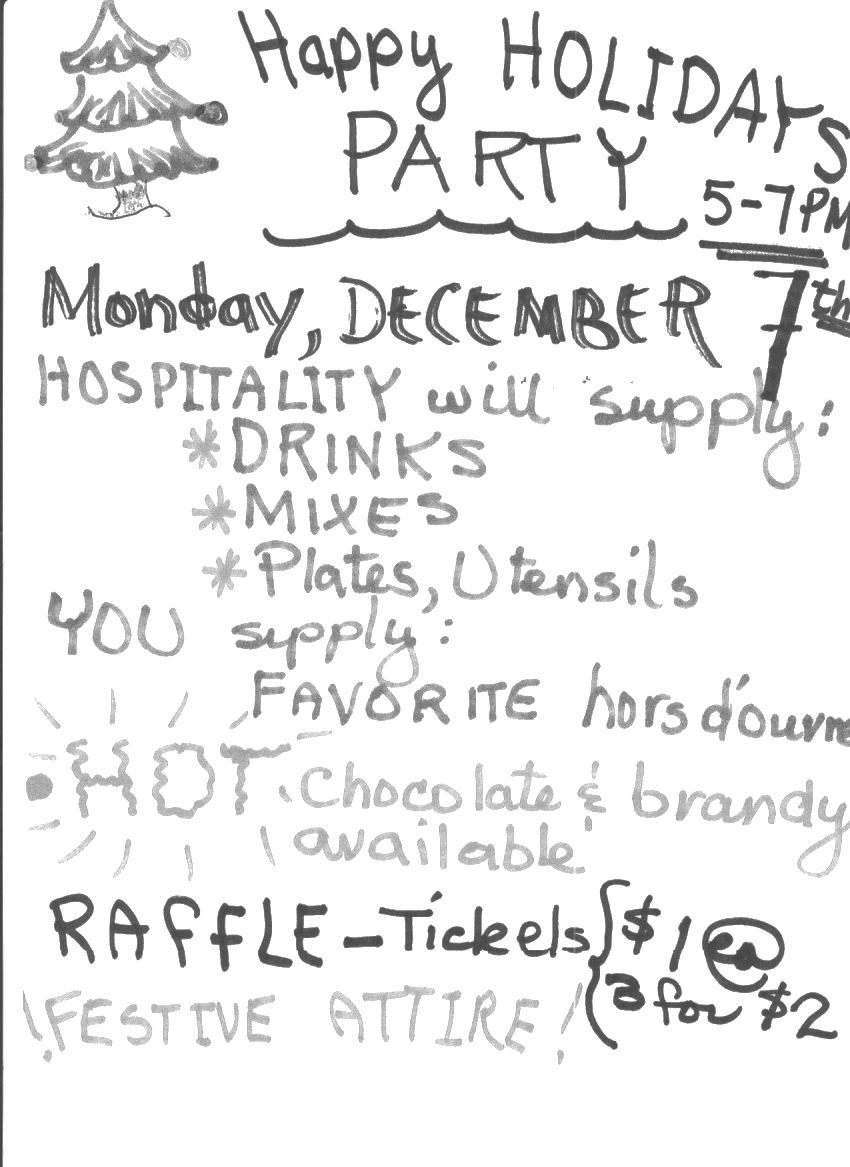 Happy HOLIDAYS
PARTY
5-7PM
Monday, DECEMBER 7th
HOSPITALITY will supply:
* DRINKS
* MIXES
* Plates, Utensils
YOU supply:
FAVORITE hors d'ourve
HOT Chocolate & brandy
available
RAFFLE - Tickets { $1 ea
3 for $2
! FESTIVE ATTIRE !